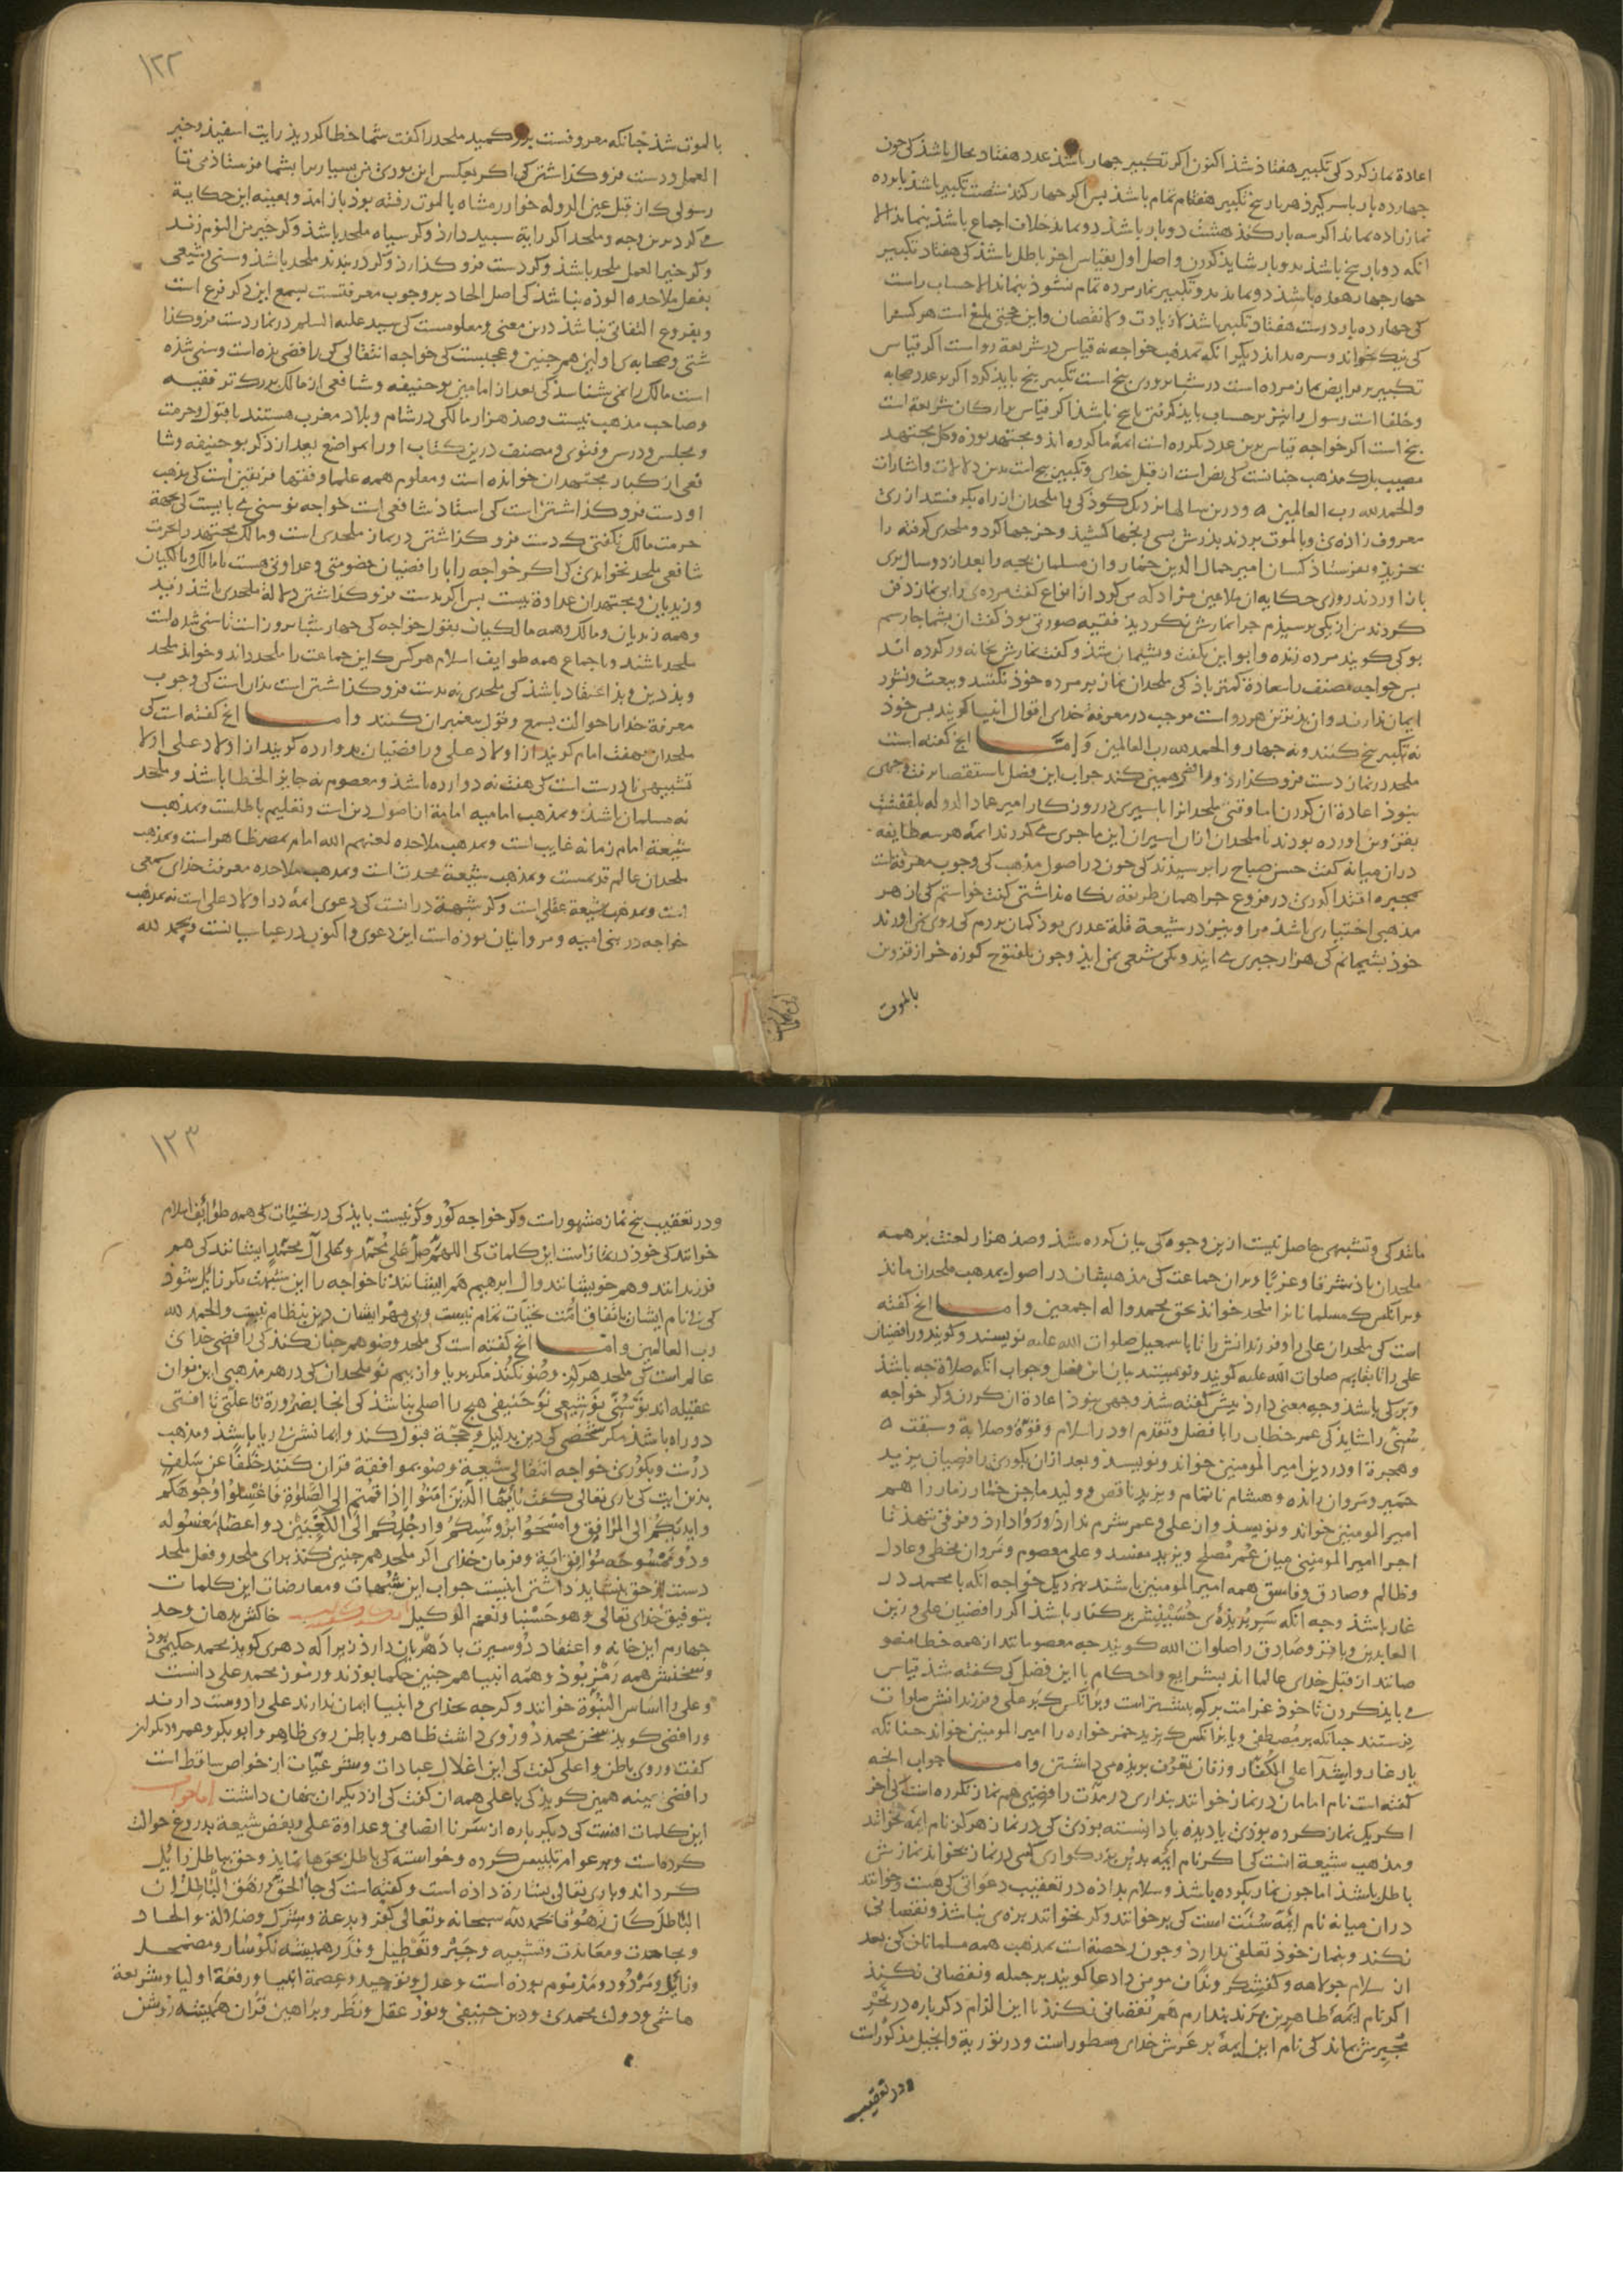 اعادة نماز کرد کی تکبیر هفتاذ شذ اکنون اکر تکبیر جهار باشذ عدد هفتاذ بحال باشذ کی جون
جهارده بار باسر کیرذ هر بار پنج تکبیر هفتاد تمام باشذ بس اکر جهار کند شصت تکبیر باشذ یا بوده
نماز زاده بماند اکر سه بار کنذ هشت دوبار باشذ دو بماند خلاف اجماع باشذ بنماند الا
انکه دوبار پنج باشذ بدوبار شاید کردن واصل اول بقیاس اخر باطل باشذ کی هفتاد تکبیر
جهار جهار هفده باشذ دو بماند بدو تکبیر نماز مرده تمام نشوذ بنماند الا حساب راست
کی جهارده بار درست هفتاذ تکبیر باشذ لا زیادت ولا نقصان واین حجتی بلیغ است هر کس را
کی نیک بخواند وسره بداند دیکر انکه بمذهب خواجه نه قیاس در شریعة رواست اکر قیاس
تکبیر بر فرایض نماز مرده است در شبانروزی پنج است تکبیر پنج باید کرد واکر بر عدد صحابه
وخلفا است رسول را نیز بر حساب باید کرفتن تا پنج باشذ اکر قیاس بر ارکان شریعة است
پنج است اکر خواجه قیاس برین عدد نکرده است ائمۀ ما کرده اند ومجتهد بوذه وکل مجتهد
مصیب بلک مذهب جنانست کی نص است از قبل خدای وتکبیر پنج است بدین دلالات واشارات
والحمد لله رب العالمین ٥ ودرین سالها نزدیک کوذکی را ملحدان از راه بکرفتند از ری
معروف زاده ئ وبالموت بردند بذرش بسی رنجها کشیذ وخرجها کرد وملحدی کرفته را
بخریذ وبفرستاذ کسان امیر جمال الدین خمار وان مسلمان بچه را بعد از دو سال بری
باز اوردند روزی حکایه ان ملاعین مزاد که می کرد از انواع کفت مرده ئ را بی نماز دفن
کردند من از یکی برسیذم جرا نمازش نکردیذ فقیه صورتی بوذ کفت ان بشما جا رسم
بو کی کویند مرده زنده وابو این بکفت وبشیمان شذ وکفت نمارش بخانه در کرده اند
بس خواجه مصنف را سعادة کمتر باذ کی ملحدان نماز بر مرده خوذ نکنند وببعث ونشور
ایمان ندارند وان بذتر نزن هر دو است موجب در معرفۀ خدای اقوال انبیا کویند بس خوذ
نه تکبیر پنج کنند ونه جهار والحمد لله رب العالمین وامــا انچ کفته است
ملحد در نماز دست فرو کذارد ورافضی همین کند جواب این فصل باستقصا برفت وجهی
نبوذ اعادة ان کردن اما وقتی ملحدانرا باسیری در روزکار امیر عماد الدوله بلقفشت
بقزوین اورده بودند تا ملحدان ازان اسیران این ماجری می کردند ائمۀ هر سه طایفه
دران میانه کفت حسن صباح را برسیذند کی جون در اصول مذهب کی وجوب معرفة است
بمجبره اقتدا کردی در فروع جرا همان طریقه نکاه نداشتی کفت خواستم کی از هر
مذهبی اختیاری باشذ مرا ونیز در شیعة قلة عددی بوذ کمان بردم کی روی بمن اورند
خوذ بشیمانم کی هزار جبری می ایند ویکی شیعی نمی ایذ وجون بلفتوح کوزه خر از قزوین
بالموت
١٢٢
بالموت شذ جنانکه معروفست بزرکمید ملحد را کفت شما خطا کردید رایت اسفیذ وخیر
العمل ودست فرو کذاشتن کی اکر بعکس این بودی من بسیار برا بشما فرستاذمی تا
رسولی کاز قبل عین الدوله خوارزمشاه بالموت رفته بوذ باز امذ وبعینه این حکایة
می کرد برین وجه وملحد اکر رایة سبید دارد وکر سیاه ملحد باشذ وکر خیر من النوم زند
وکر خیر العمل ملحد باشذ وکر دست فرو کذارد وکر در بندد ملحد باشذ وسنی وشیعی
بفعل ملاحده الوذه نباشذ کی اصل الحاد بر وجوب معرفتست بسمع این دکر فرع است
وبفروع التفاتی نباشذ درین معنی ومعلومست کی سید علیه السلم در نماز دست فرو کذا
شتی وصحابه ی اولین هم جنین وعجبست کی خواجه انتقالی کی رافضی بوذه است وسنی شذه
است مالک را نمی شناسذ کی بعد از امامین بو حنیفه وشافعی از مالک بزرکتر فقیه
وصاحب مذهب نیست وصذ هزار مالکی در شام وبلاد مغرب هستند با قبول وحرمت
ومجلس ودرس وفتوی ومصنف درین کتاب اورا بمواضع بعد از ذکر بو حنیفه وشا
فعی از کبار مجتهدان خوانده است ومعلوم همه علما وفقها فریقین است کی مذهب
او دست فرو کذاشتن است کی استاذ شافعی است خواجه نو سنی می بایست کی بجهة
حرمت مالک نکفتی ک دست فرو کذاشتن در نماز ملحدی است ومالک مجتهد را بحرمت
شافعی ملحد نخواندی کی اکر خواجه را با رافضیان خصومتی وعداوتی هست با مالک ومالکیان
وزیدیان ومجتهدان عداوة نیست بس اکر بدست فرو کذاشتن دلالة ملحدی باشذ زید
وهمه زیدیان ومالک وهمه مالکیان بقول خواجه کی جهار شبانروز است تا سنی شده است
ملحد باشند وباجماع همه طوایف اسلام هر کس ک این جماعت را ملحد داند وخواند ملحد
وبذ دین وبذ اعتقاد باشذ کی ملحدی نه بدست فرو کذاشتن است بدان است کی وجوب
معرفة خدا را حوالت بسمع وقول بیغمبران کنند وامــا انچ کفته است کی
ملحدان بهفت امام کویند از اولاد علی ورافضیان بدوازده کویند از اولاد علی اولا
تشبیهی نا درست است کی هفت نه دوازده باشذ ومعصوم نه جایز الخطا باشذ وملحد
نه مسلمان باشذ وبمذهب امامیه امامة از اصول دین است وتعلیم باطلست وبمذهب
شیعة امام زمانه غایب است وبمذهب ملاحده لعنهم الله امام بمصر ظاهر است وبمذهب
ملحدان عالم قدیمست وبمذهب شیعة محدث است وبمذهب ملاحده معرفت خدای سمعی
است وبمذهب شیعة عقلی است وکر شبهة درانست کی دعوی ائمۀ در اولاد علی است نه بمذهب
خواجه در بنی امیه ومروانیان بوذه است این دعوی واکنون در عباسیانست وبحمد لله
مانند کی وتشبیهی حاصل نیست ازین وجوه کی بیان کرده شذ وصذ هزار لعنت بر همه
ملحدان باذ بشرقا وغربا وبران جماعت کی مذهبشان در اصول بمذهب ملحدان مانذ
وبرانکس ک مسلمانانرا ملحد خواند بحق محمد واله اجمعین وامــا انچ کفته
است کی ملحدان علی را وفرزندانش را تا باسمعیل صلوات الله علیه نویسند وکویند ورافضیان
علی را تا بقایم صلوات الله علیه کویند ونویسند بیان این فصل وجواب انکه صلاة جه باشذ
وبر کی باشذ وجه معنی دارد بیش کفته شذ وجهی نبوذ اعادة ان کردن وکر خواجه
سنی را شاید کی عمر خطاب را با فضل وتقدم او در اسلام وقوة وصلابة وسبقت ٥
وهجرة او در دین امیر المومنین خواند ونویسد وبعد ازان بکوری رافضیان یزید
خمیر ومروان رانذه وهشام ناتمام ویزید ناقص وولید ماجن ختار زمار را هم
امیر المومنین خواند ونویسد وان علی وعمر شرم ندارذ وروا دارد وفرقی ننهذ تا
اجرا امیر المومنینی میان عمر مصلح ویزید مفسد وعلی معصوم ومروان مخطی وعادل
وظالم وصادق وفاسق همه امیر المومنین باشند بنزدیک خواجه انکه با محمد در
غار باشذ وجه انکه سر بریذه ی حسینش بر کنار باشذ اکر رافضیان علی وزین
العابدین وباقر وصادق را صلوات الله کویند جه معصومانند از همه خطا منصو
صانند از قبل خدای عالما اند بشرایع واحکام با این فضل کی کفته شذ قیاس
می باید کردن تا خوذ غرامت بر که بیشتر است وبرانکس ک بر علی وفرزندانش صلوات
فرستند جنانکه بر مصطفی ویا برانکس ک یزید خمر خواره را امیر المومنین خواند جنانکه
یار غار واشدا علی الکفار وزفان تعرف بریذه می داشتن وامــا جواب انچه
کفته است نام امامان در نماز خوانند بنداری در مدت رافضیی هم نماز نکرده است کی اخر
اکر یک نماز کرده بوذی یا دیذه یا دانسته بوذی کی در نماز هرکز نام ائمه نخوانند
ومذهب شیعة انست کی اکر نام ائمه بدین بزرکواری کسی در نماز بخواند نمازش
باطل باشذ اما جون نماز بکرده باشذ وسلام بداذه در تعقیب دعواتی کی هست وخوانند
دران میانه نام ائمۀ سنت است کی برخوانند وکر نخوانند بزه ی نباشذ ونقصانی
نکند وبنماز خوذ تعلقی ندارد وجون رخصة است بمذهب همه مسلمانان کی بعد
از سلام جولاهه وکفشکر وندان مومن را دعا کویند بر جمله ونقصانی نکنذ
اکر نام ائمۀ طاهرین ببرند بندارم هم نقصانی نکنذ با این الزام دکر باره در تحیر
تحیرش بماند کی نام این ائمۀ بر عرش خدای مسطور است ودر توریة وانجیل مذکور است
ودر تعقیب
١٢٣
ودر تعقیب پنج نماز مشهور است وکر خواجه کور وکر نیست بایذ کی در تحیات کی همه طوایف اسلام
خوانند کی خوذ در نماز است این کلمات کی اللهم صل علی محمد وعلی آل محمد ایشانند کی هم
فرزندانند وهم خویشانند وال ابرهیم هم ایشانند تا خواجه را این شبهت مکر زایل شوذ
کی بی نام ایشان باتفاق امت تحیات تمام نیست وبی مهر ایشان دین بنظام نیست والحمد لله
رب العالمین وامــا انچ کفته است کی ملحد وضو هم جنان کنذ کی رافضی خدای
عالم است کی ملحد هرکز وضو نکند مکر بریا واز بیم تو ملحدان کی در هر مذهبی این نوان
عقیله اند بو سنی بو شیعی بو حنیفی هیچ را اصلی نباشذ کی انجا بضرورة تا علتی تا افتی
در راه باشذ مکر شخصی کی دین بدلیل وحجة قبول کند وایمانش بی ریا باشذ ومذهب
درست وبکوری خواجه انتقالی شیعة وضو بموافقة قران کنند خلفا عن سلف
بذین ایت کی باری تعالی کفت یایها الذین امنوا اذا قمتم الی الصلوة فاغسلوا وجوهکم
وایدیکم الی المرافق وامسحوا برؤسکم وارجلکم الی الکعبین دو اعضا مغسوله
ودو ممسوحه موافق ایة وفرمان خذای اکر ملحد هم جنین کنذ برای ملحد وفعل ملحد
دست از حق بنشاید داشتن اینست جواب این شبهات ومعارضات این کلمات
بتوفیق خدای تعالی وهو حسبنا ونعم الوکیل خاکش بدهان وحد
جهارم این خانه واعتقاد دو سیرت با دهریان دارد زیرا که دهری کوید محمد حکیمی بوذ
وسخنش همه رمز بوذ وهمه انبیا هم جنین حکما بوذند ورموز محمد علی دانست
وعلی را اساس النبوة خوانند وکرجه بخدای وانبیا ایمان ندارند علی را دوست دارند
ورافضی کوید سخن محمد دو روی داشت ظاهر وباطن روی ظاهر وابو بکر وعمر ودیکرانر
کفت وروی باطن وا علی کفت کی این اغلال عبادات وشرعیات از خواص ساقط است
رافضی بعینه همین کوید کی با علی همه ان کفت کی از دیکران بنهان داشت اما جواب
این کلمات انست کی دیکر باره از سر نا انصافی وعداوة علی وبغض شیعة بدروغ حوالت
کرده است وبر عوام تلبیس کرده وخواسته کی باطل بحق ها نماید وحق بباطل زایل
کرداند وباری تعالی بشارة داذه است وکفته است کی جا الحق وزهق الباطل ان
الباطل کان زهوقا بحمد لله سبحانه وتعالی کفر وبدعة وشرک وضلالة والحاد
ومجاهدت ومعاندت وتشبیه وجبر وتعطیل وقدر همیشه نکوسار ومضمحل
وزایل ومردود ومذموم بوذه است وعدل وتوحید وعصمة انبیا ورفعة اولیا وشریعة
هاشمی ودولت محمدی ودین حنیفی ونور عقل ونظر وبراهین قران همیشه روشن